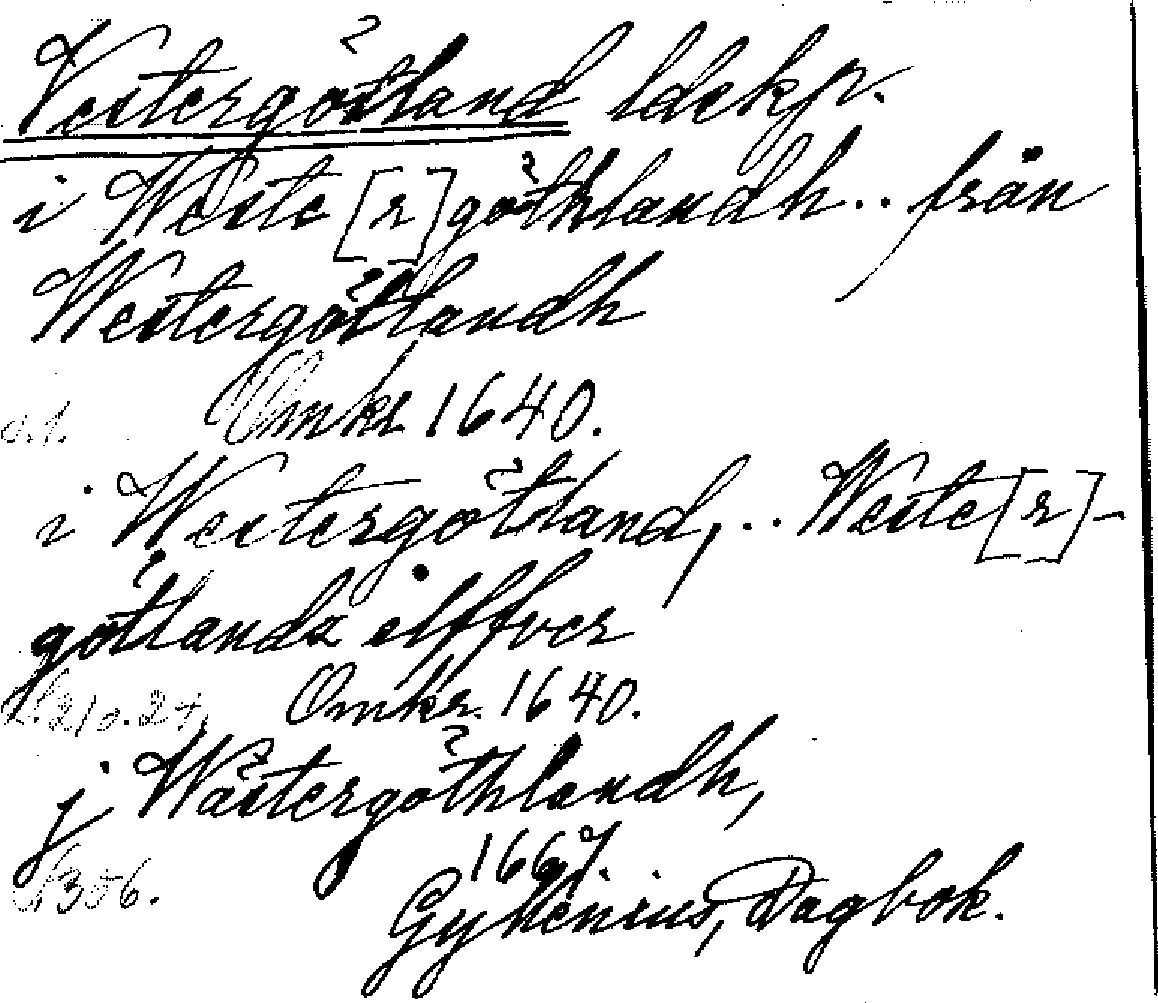 Vestergötland ldskp.
i Weste[r]göthlandh.. från
Westergötlandh
Omkr. 1640.
i Westergötland,.. Weste[r]-
götlandz elffver
S. 210. 2+. Omkr. 1640.
j Wästergöthlandh,
1667.
S. 356.
Gyllenius, Dagbok.